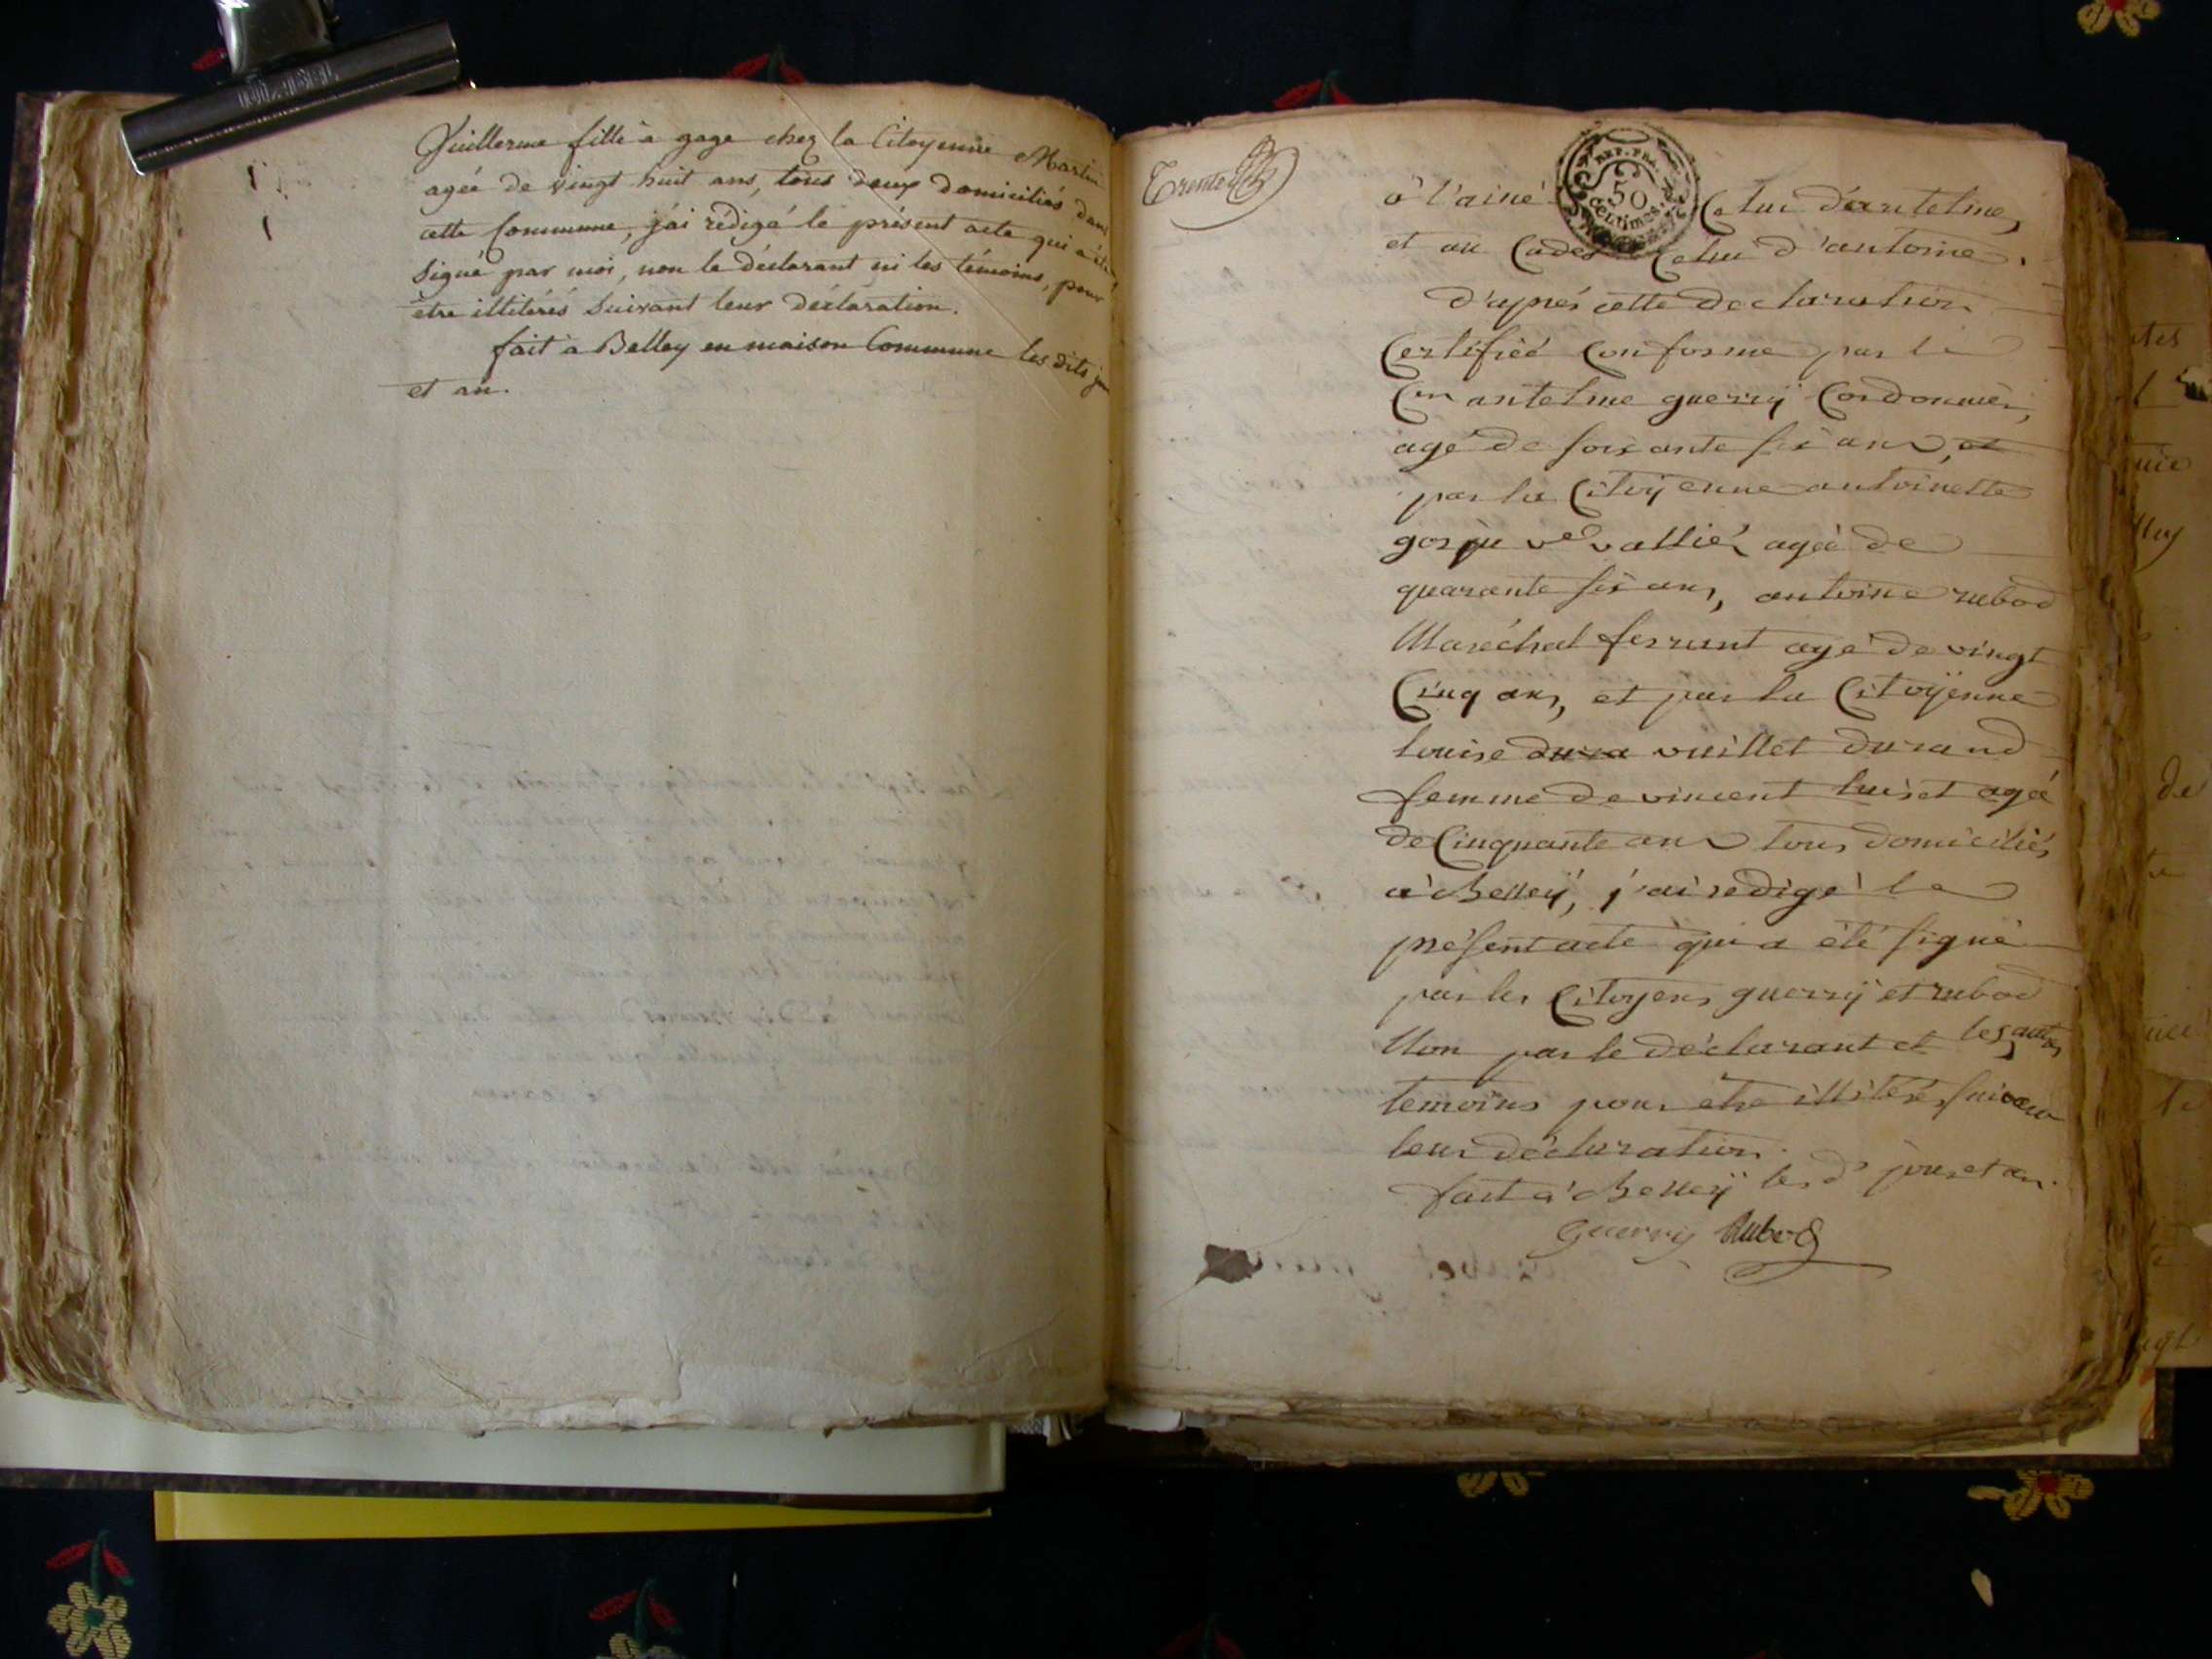 Guillerme fille à gage chez la Citoyenne Martin
agée de vingt huit ans, tous deux domiciliés dans
cette Commune, j'ai rédigé le présent acte qui a été
signé par moi, non le déclarant ni les témoins, pour
être illiterés suivant leur déclaration.
fait à Belley en maison Commune les dits jour
et an.
Trente
REP. FRA.
50
centimes.
à l'ainé Celui d'antelme,
et au Cadet Celui d'antoine.
d'aprés cette declaration
Certifiée Conforme par le
Cen antelme guerrÿ Cordonnier,
agé de soixante six ans, et
par la Citoÿenne antoinette
ve vallier agée de
quarante six ans, antoine rubod
Maréchal ferrant agé de vingt
Cinq ans, et par la Citoÿenne
louise dura vuillet durand
femme de vincent luiset agée
de Cinquante ans tous domiciliés
a Belleÿ, j'ai redigé le
présent acte qui a été signé
par les Citoyens guerrÿ et rubod
Non par le déclarant et les autres
temoins pour etre illiterés suivant
leur déclaration.
fait a Belleÿ les d. jour et an.
Guerry Rubod